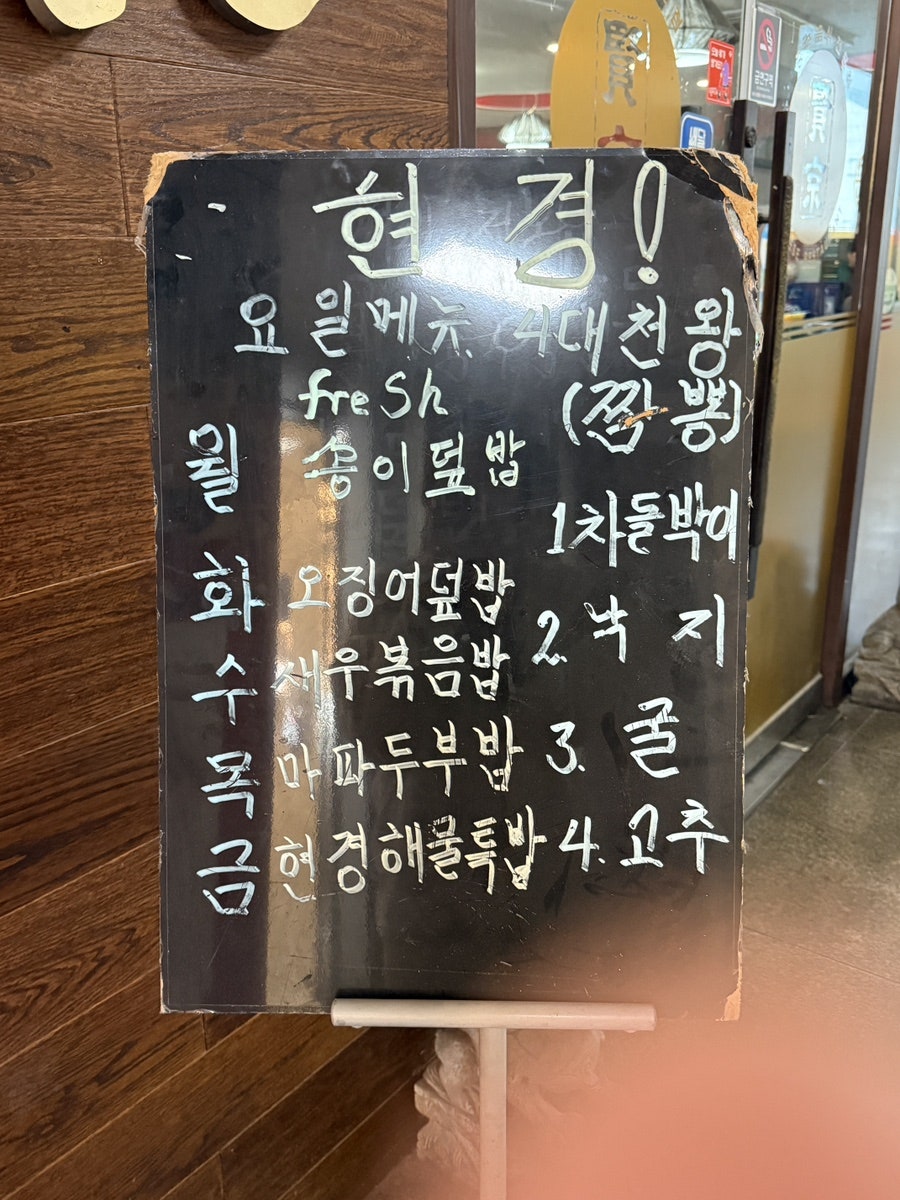 현 경!
요일메뉴 4대천왕
fresh (짬뽕)
월 송이덮밥
1 차돌박이
화 오징어덮밥
2. 낙지
수 새우볶음밥
목 마파두부밥 3. 굴
금 현경해물특밥 4. 고추
금연구역